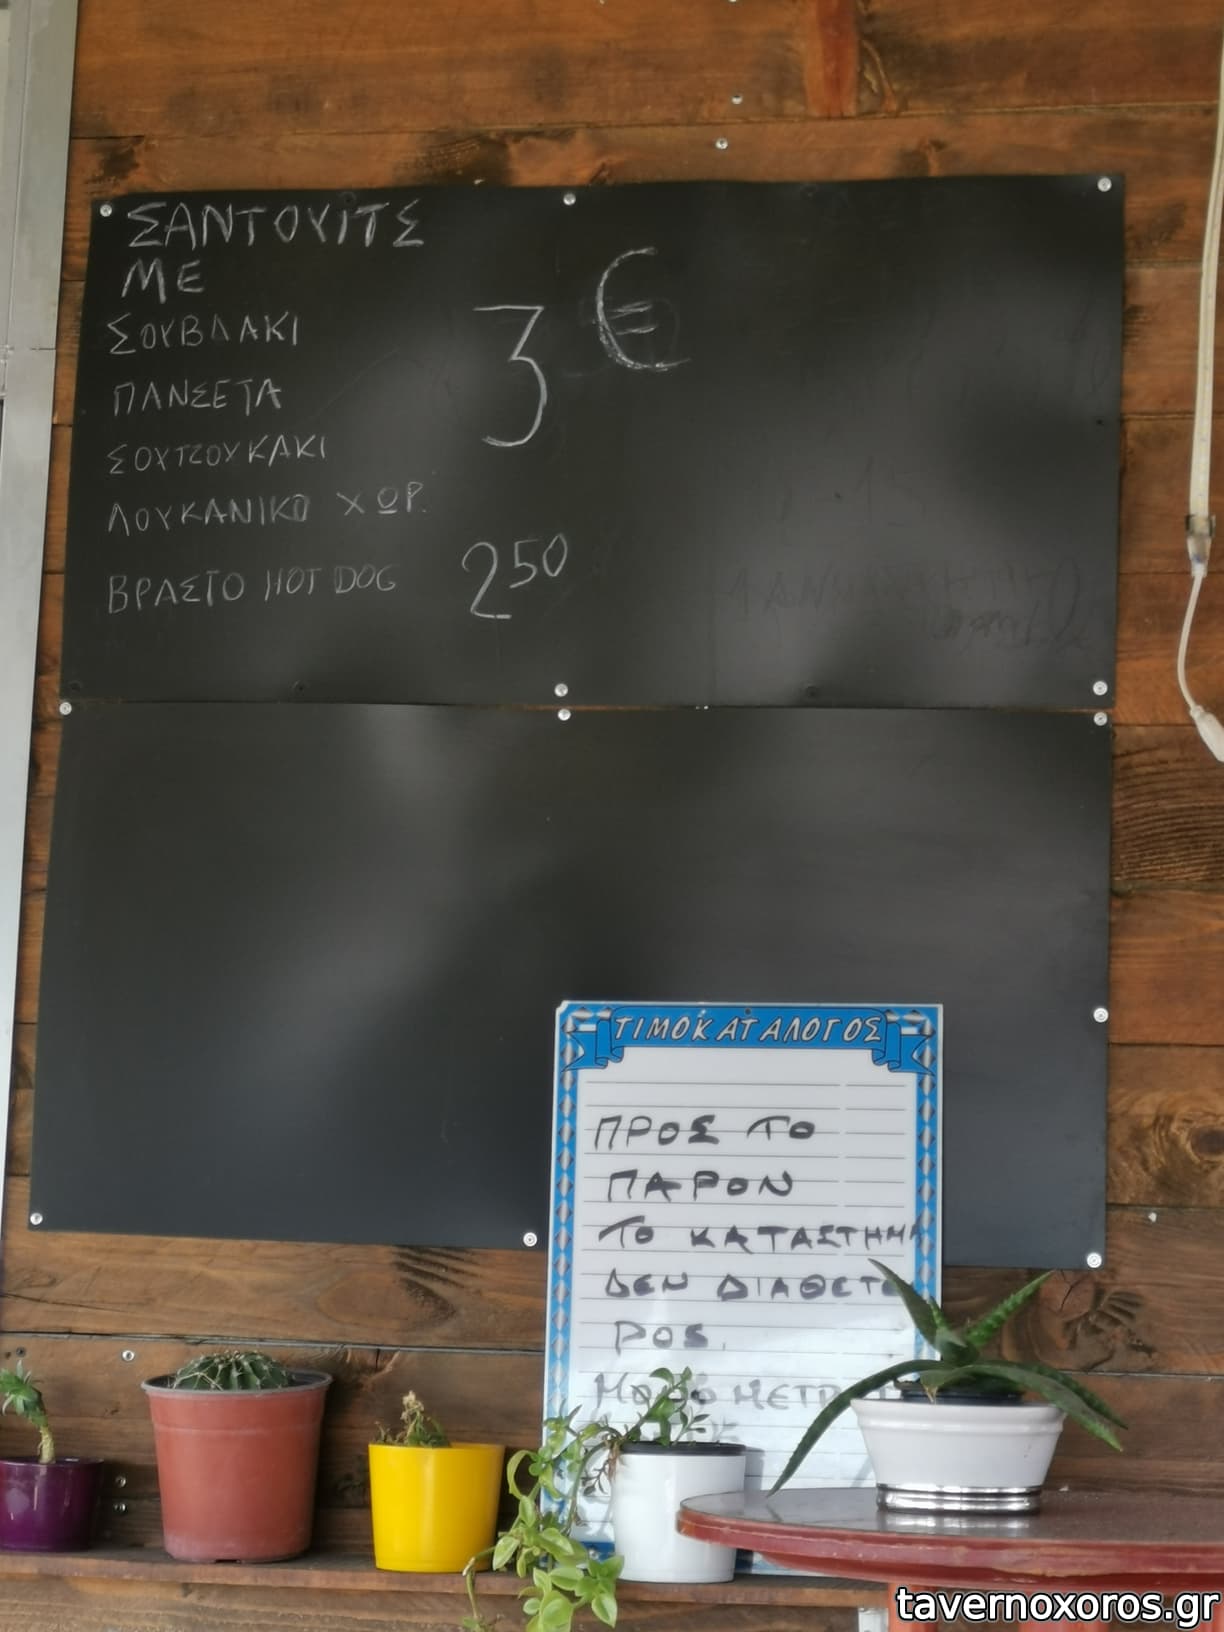 ΣΑΝΤΟΥΙΤΣ
ΜΕ
ΣΟΥΒΛΑΚΙ
ΠΑΝΣΕΤΑ
ΣΟΥΤΖΟΥΚΑΚΙ
ΛΟΥΚΑΝΙΚΟ ΧΩΡ.
3 €
ΒΡΑΣΤΟ HOT DOG 2 50
ΤΙΜΟΚΑΤΑΛΟΓΟΣ
ΠΡΟΣ ΤΟ
ΠΑΡΟΝ
ΤΟ ΚΑΤΑΣΤΗΜΑ
ΔΕΝ ΔΙΑΘΕΤΕ
POS.
ΜΟΝΟ
tavernoxoros.gr